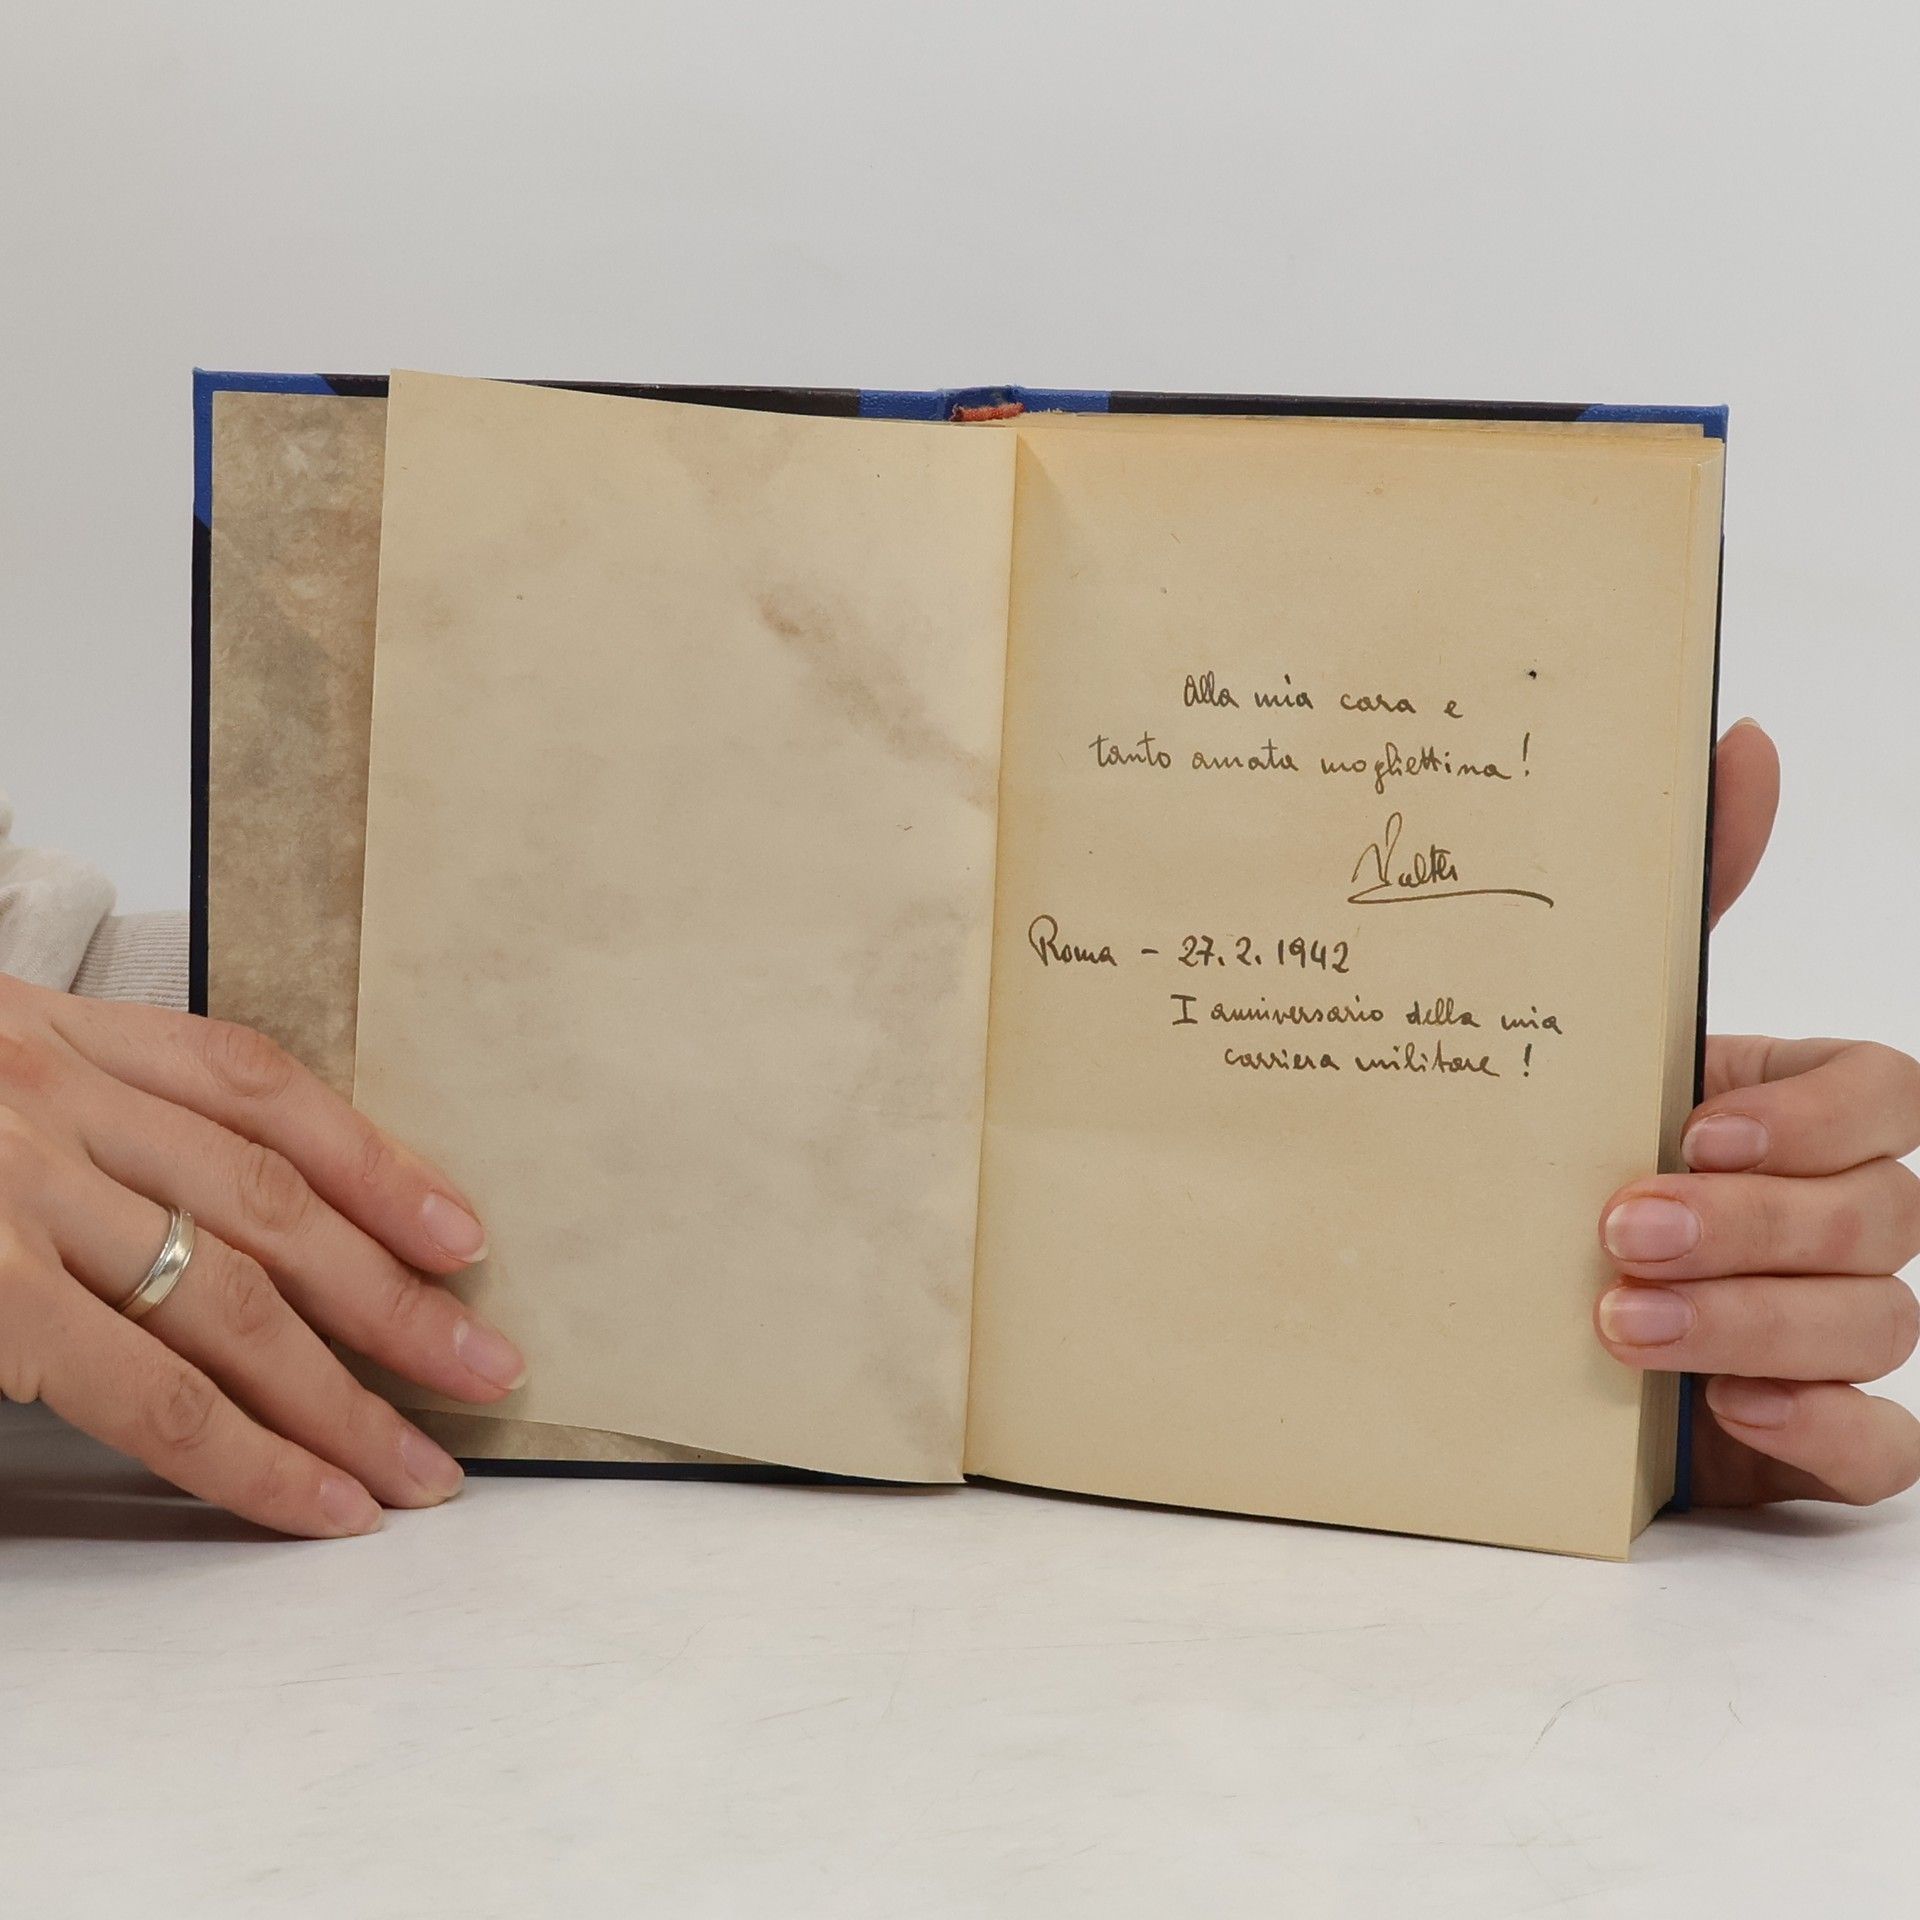 Alla mia cara e
tanto amata mogliettina!
Walter
Roma - 27.2.1942
I anniversario della mia
carriera militare!